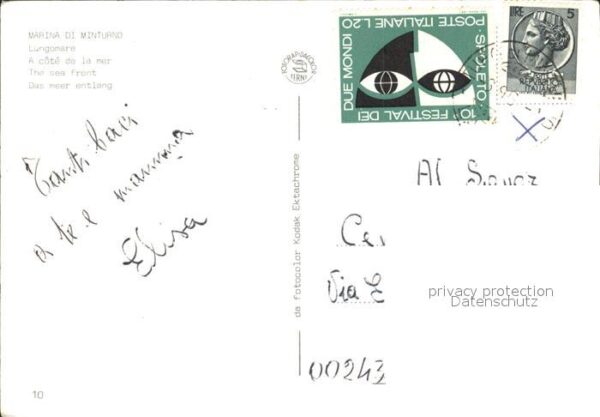 MARINA DI MINTURNO
Lungomare
A côté de la mer
The sea front
Das meer entlang
Tanti baci
a te e mamma
Elisa
10
da fotocolor Kodak Ektachrome
TERNI
10° FESTIVAL DEI DUE MONDI
SPOLETO
POSTE ITALIANE L.20
LIRE 5
ITALIANA
X
Al
Via
00243
privacy protection
Datenschutz